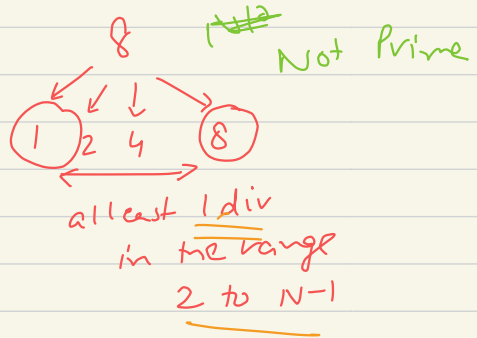 8
Not Prime
1 2 4 8
atleast 1 div
in the range
2 to N-1